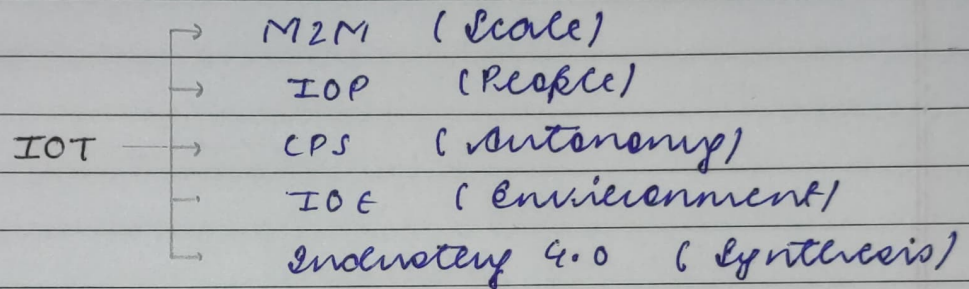 M2M (Scale)
IOP (People)
IOT
CPS (Autonomy)
IOE (Environment)
Industry 4.0 (Synthesis)